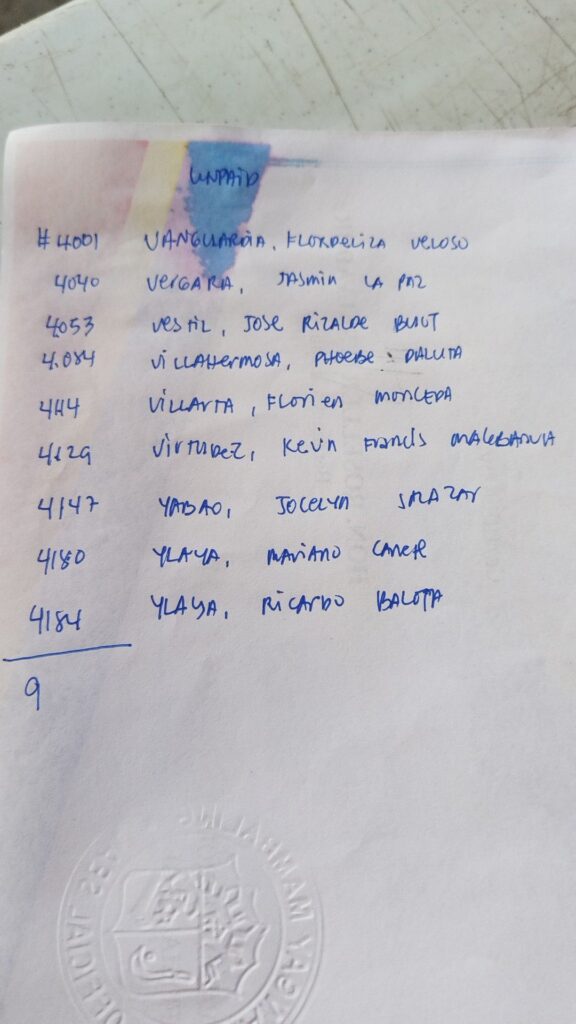 UNPAID
#4001 VANGUARDIA, FLORDELIZA VELOSO
4040 VERGARA, JASMIN LA PAZ
4053 VESTIL, JOSE RIZALDE
4084 VILLAHERMOSA, PHOEBE
4114 VILLARTA, FLORIEN MONCEDA
4129 VIRTUDEZ, KEVIN FRANCIS
4147 YABAO, JOCELYN SALAZAR
4180 YLAYA, MARIANO
4184 YLAYA, RICARDO
9